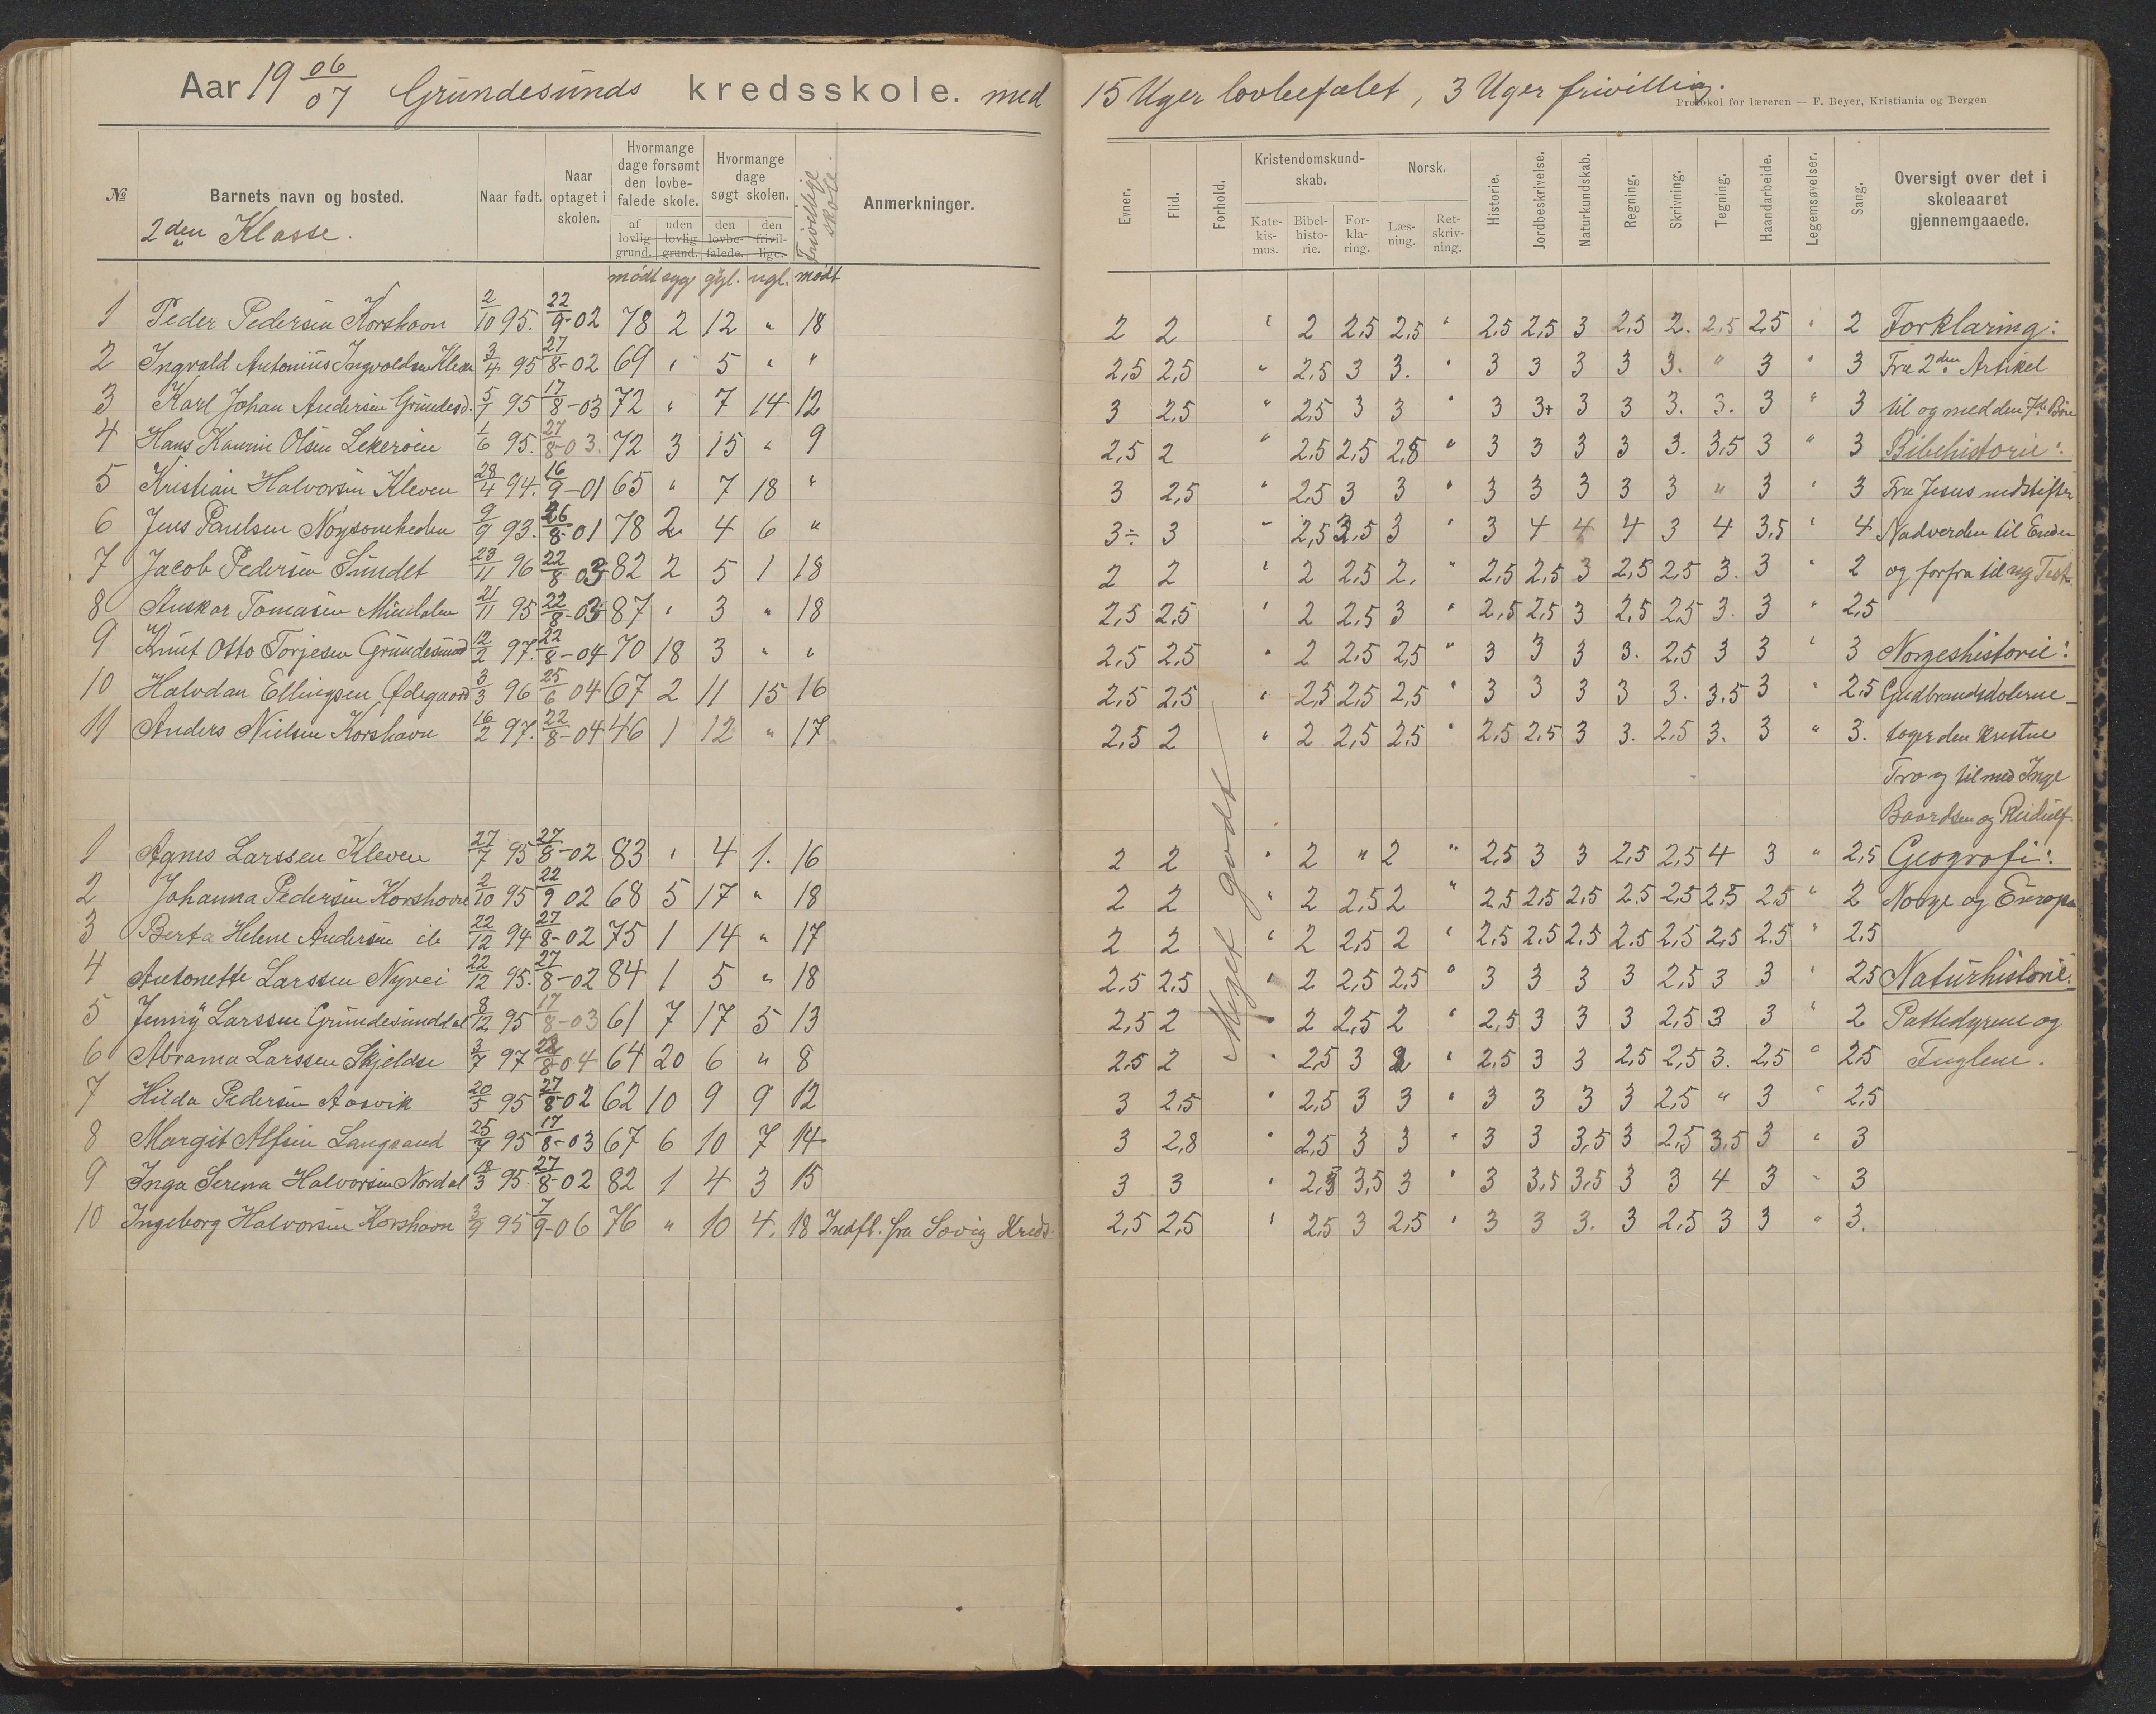 Aar 19 06/07 Grundesunds kredsskole. med 15 Uger lovbefalet, 3 Uger frivillig.
Protokol for læreren — F. Beyer, Kristiania og Bergen
№ Barnets navn og bosted. Naar født. Naar optaget i skolen. Hvormange dage forsømt den lovbefalede skole. af lovlig grund. uden lovlig grund. Hvormange dage søgt skolen. den lovbefalede. den frivillige. Frivillige skole. Anmerkninger.
Evner. Flid. Forhold. Kristendomskundskab. Katekismus. Bibelhistorie. Forklaring. Norsk. Læsning. Retskrivning. Historie. Jordbeskrivelse. Naturkundskab. Regning. Skrivning. Tegning. Haandarbeide. Legemsøvelser. Sang. Oversigt over det i skoleaaret gjennemgaaede.
2den Klasse.
mødt syg gyl. ugl. mødt
1 Peder Pedersen Korshavn 2/10 95. 22/9-02 78 2 12 " 18 2 2 " 2 2,5 2,5 " 2,5 2,5 3 2,5 2. 2,5 2,5 " 2 Forklaring:
2 Ingvald Antonius Ingvoldsen Kleven 3/4 95 27/8-02 69 " 5 " " 2,5 2,5 " 2,5 3 3. " 3 3 3 3 3. " 3 " 3 Fra 2den Artikel
3 Karl Johan Andersen Grundesd. 5/7 95 17/8-03 72 " 7 14 12 3 2,5 " 2,5 3 3 " 3 3+ 3 3 3. 3. 3 " 3 til og med den 7de Bøn
4 Hans Olsen Lekerøen 1/6 95. 27/8-03. 72 3 15 " 9 2,5 2 " 2,5 2,5 2,8 " 3 3 3 3 3. 3,5 3 " 3 Bibelhistorie:
5 Kristian Halvorsen Kleven 28/4 94. 16/9-01 65 " 7 18 " 3 2,5 " 2,5 3 3 " 3 3 3 3 3 " 3 " 3 Fra Jesus indstifter
6 Jens Paulsen 9/9 93. 26/8-01 78 2 4 6 " 3÷ 3 " 2,5 3,5 3 " 3 4 4 4 3 4 3,5 " 4 Nadverden til Enden
7 Jacob Pedersen Sundet 23/11 96 22/8 03 82 2 5 1 18 2 2 " 2 2,5 2. " 2,5 2,5 3 2,5 2,5 3. 3 " 2 og forfra til ny Test.
8 Anskar Tomasen 21/11 95 22/8-03 87 " 3 " 18 2,5 2,5 " 2 2,5 3 2,5 2,5 3 2,5 2,5 3. 3 " 2,5
9 Knut Otto Torjesen Grundesund 12/2 97. 22/8-04 70 18 3 " " 2,5 2,5 " 2 2,5 2,5 " 3 3 3 3. 2,5 3 3 " 3 Norgeshistorie:
10 Halvdan Ellingsen Ødegaard 3/3 96 25/6 04 67 2 11 15 16 2,5 2,5 " 2,5 2,5 2,5 " 3 3 3 3 3. 3,5 3 " 2,5 Gudbrandsdølerne
11 Anders Nielsen Korshavn 16/2 97. 22/8-04 46 1 12 " 17 2,5 2 " 2 2,5 2,5 " 2,5 2,5 3 3. 2,5 3. 3 " 3. tager den kristne
Tro og til med Inge
Baardsen og
1 Agnes Larssen Kleven 27/7 95 27/8-02 83 " 4 1. 16 2 2 " 2 " 2 " 2,5 3 3 2,5 2,5 4 3 " 2,5 Geografi:
2 Johanna Pedersen Korshavn 2/10 95 22/9 02 68 5 17 " 18 2 2 " 2 2,5 2 " 2,5 2,5 2,5 2,5 2,5 2,5 2,5 " 2 Norge og Europa
3 Berta Helene Andersen ib 22/12 94 27/8-02 75 1 14 " 17 2 2 " 2 2,5 2 " 2,5 2,5 2,5 2,5 2,5 2,5 2,5 " 2,5
4 Antonette Larssen Nyvei 22/12 95. 27/8-02 84 1 5 " 18 2,5 2,5 " 2 2,5 2,5 " 3 3 3 3 2,5 3 3 " 2,5 Naturhistorie.
5 Jenny Larssen Grundesundtal 8/12 95 17/8-03 61 7 17 5 13 2,5 2 " 2 2,5 2 " 2,5 3 3 3 2,5 3 3 " 2 Pattedyrene og
6 Abrama Larssen Skjeldse 3/7 97 22/8-04 64 20 6 " 8 2,5 2 " 2,5 3 2 " 2,5 3 3 2,5 2,5 3. 2,5 " 2,5 Fuglene.
7 Hilda Pedersen Aasvik 20/5 95 27/8-02 62 10 9 9 12 3 2,5 " 2,5 3 3 " 3 3 3 3 2,5 " 3 " 2,5
8 Margit Alfsen Langsand 25/7 95 17/8-03 67 6 10 7 14 3 2,8 " 2,5 3 3 " 3 3 3,5 3 2,5 3,5 3 " 3
9 Inga Serena Halvorsen Nordal 18/3 95. 27/8-02 82 1 4 3 15 3 3 " 2,5 3,5 3 " 3 3,5 3,5 3 3 4 3 " 3
10 Ingeborg Halvorsen Korshavn 3/9 95 7/9-06 76 " 10 4. 18 Indfl. fra Søvig Kreds. 2,5 2,5 " 2,5 3 2,5 " 3 3 3. 3 2,5 3 3 " 3.
Meget godt